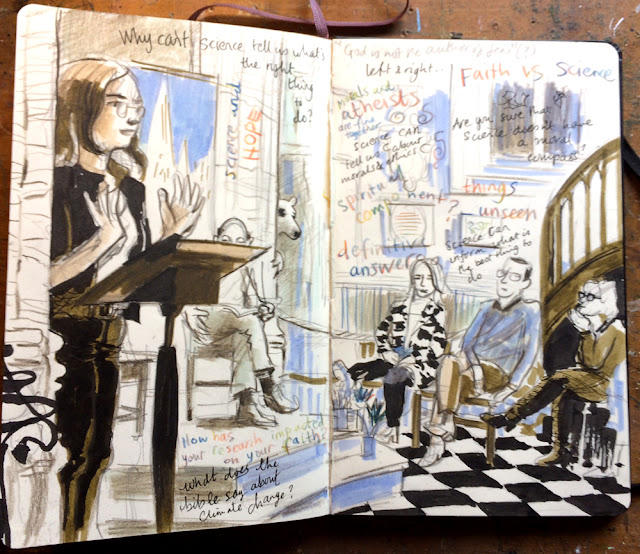 Why can't science tell us what's
the right
thing
to
do?
science and
HOPE
How has
your research impacted
on your faiths
what does the
bible say about
climate change?
"God is not the author of
left & right..
Faith vs Science
morals and
atheists
are fine
together
science can
tell us about
morals & ethics
Are you sure that
science doesn't have
a moral
compass?
spiritual
component?
things
unseen
definitive
answers
Science can
inform what is
the best thing to
do